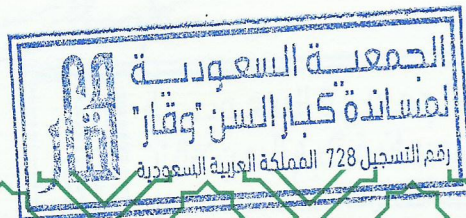 الجمعية السعودية
لمساندة كبار السن "وقار"
رقم التسجيل 728 المملكة العربية السعودية
وقار